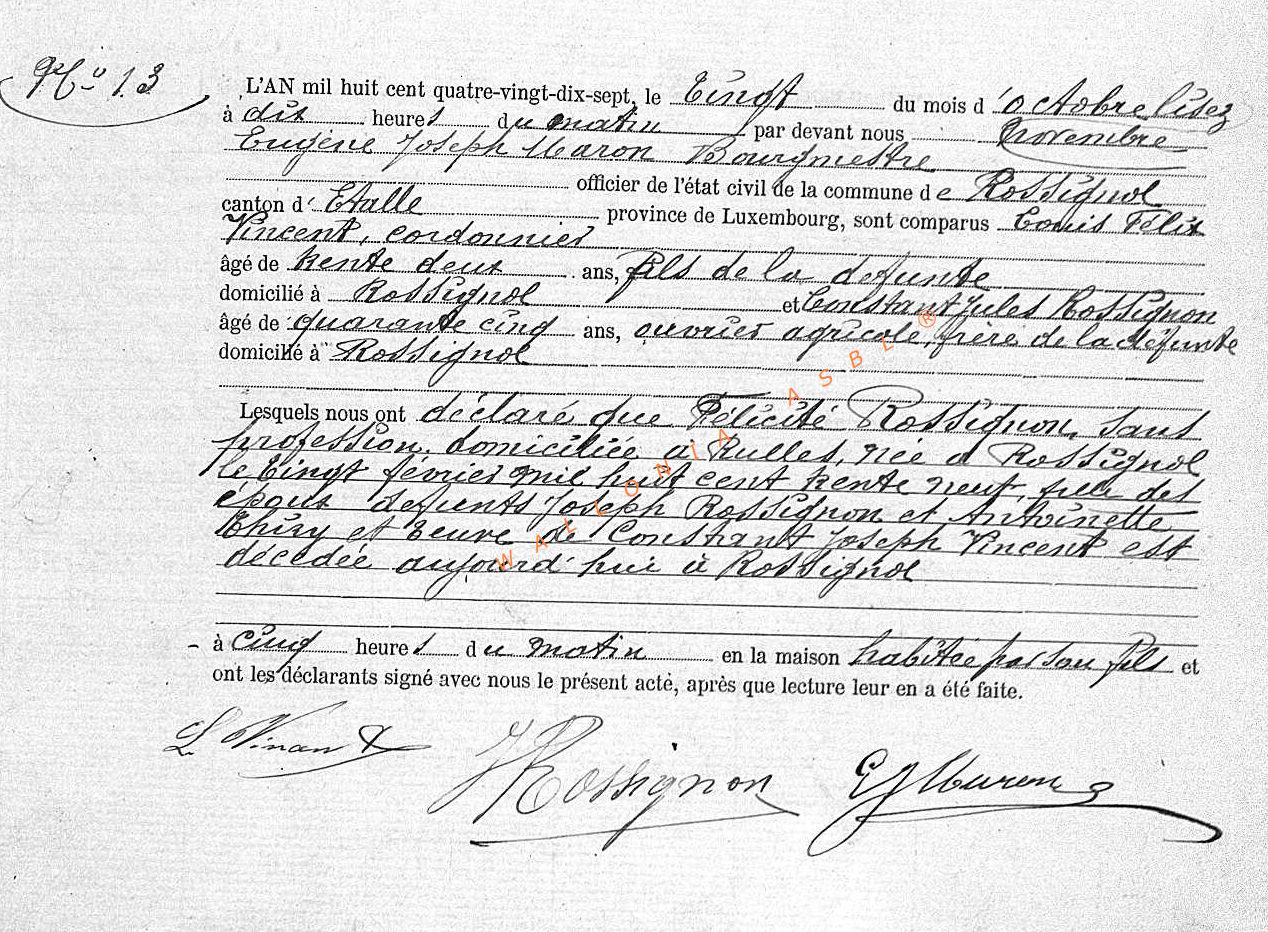 N° 13
L'AN mil huit cent quatre-vingt-dix-sept, le Vingt du mois d'octobre lisez
à dix heures du matin par devant nous novembre
Eugène Joseph Maron Bourgmestre
officier de l'état civil de la commune de Rossignol
canton d'Etalle province de Luxembourg, sont comparus Louis Félix
Vincent, cordonnier
âgé de trente deux ans, fils de la défunte
domicilié à Rossignol et Constant Jules Rossignon
âgé de quarante cinq ans, ouvrier agricole, frère de la défunte
domicilié à Rossignol
Lesquels nous ont déclaré que Félicité Rossignon, sans
profession, domiciliée à Rulles, née à Rossignol
le Vingt février mil huit cent trente neuf, fille des
époux défunts Joseph Rossignon et Antoinette
Thiry et veuve de Constant Joseph Vincent est
décédée aujourd'hui à Rossignol
à cinq heures du matin en la maison habitée par son fils et
ont les déclarants signé avec nous le présent acte, après que lecture leur en a été faite.
L. Vincent
J Rossignon
E J Maron
WALLONIA ASBL ®